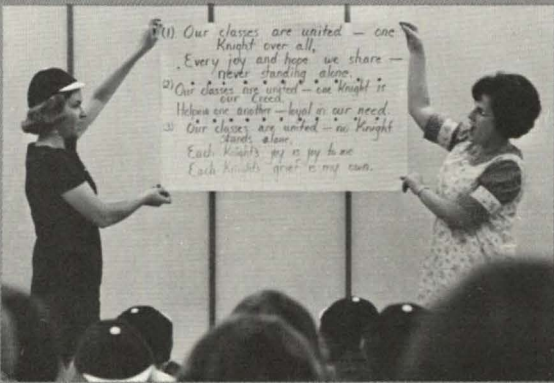 (1) Our classes are united — one
Knight over all,
Every joy and hope we share —
never standing alone.
2) Our classes are united — one Knight is
our Creed.
Helping one another — loyal in our need.
3) Our classes are united — no Knight
stands alone,
Each Knight's joy is joy to me
Each Knight's grief is my own.